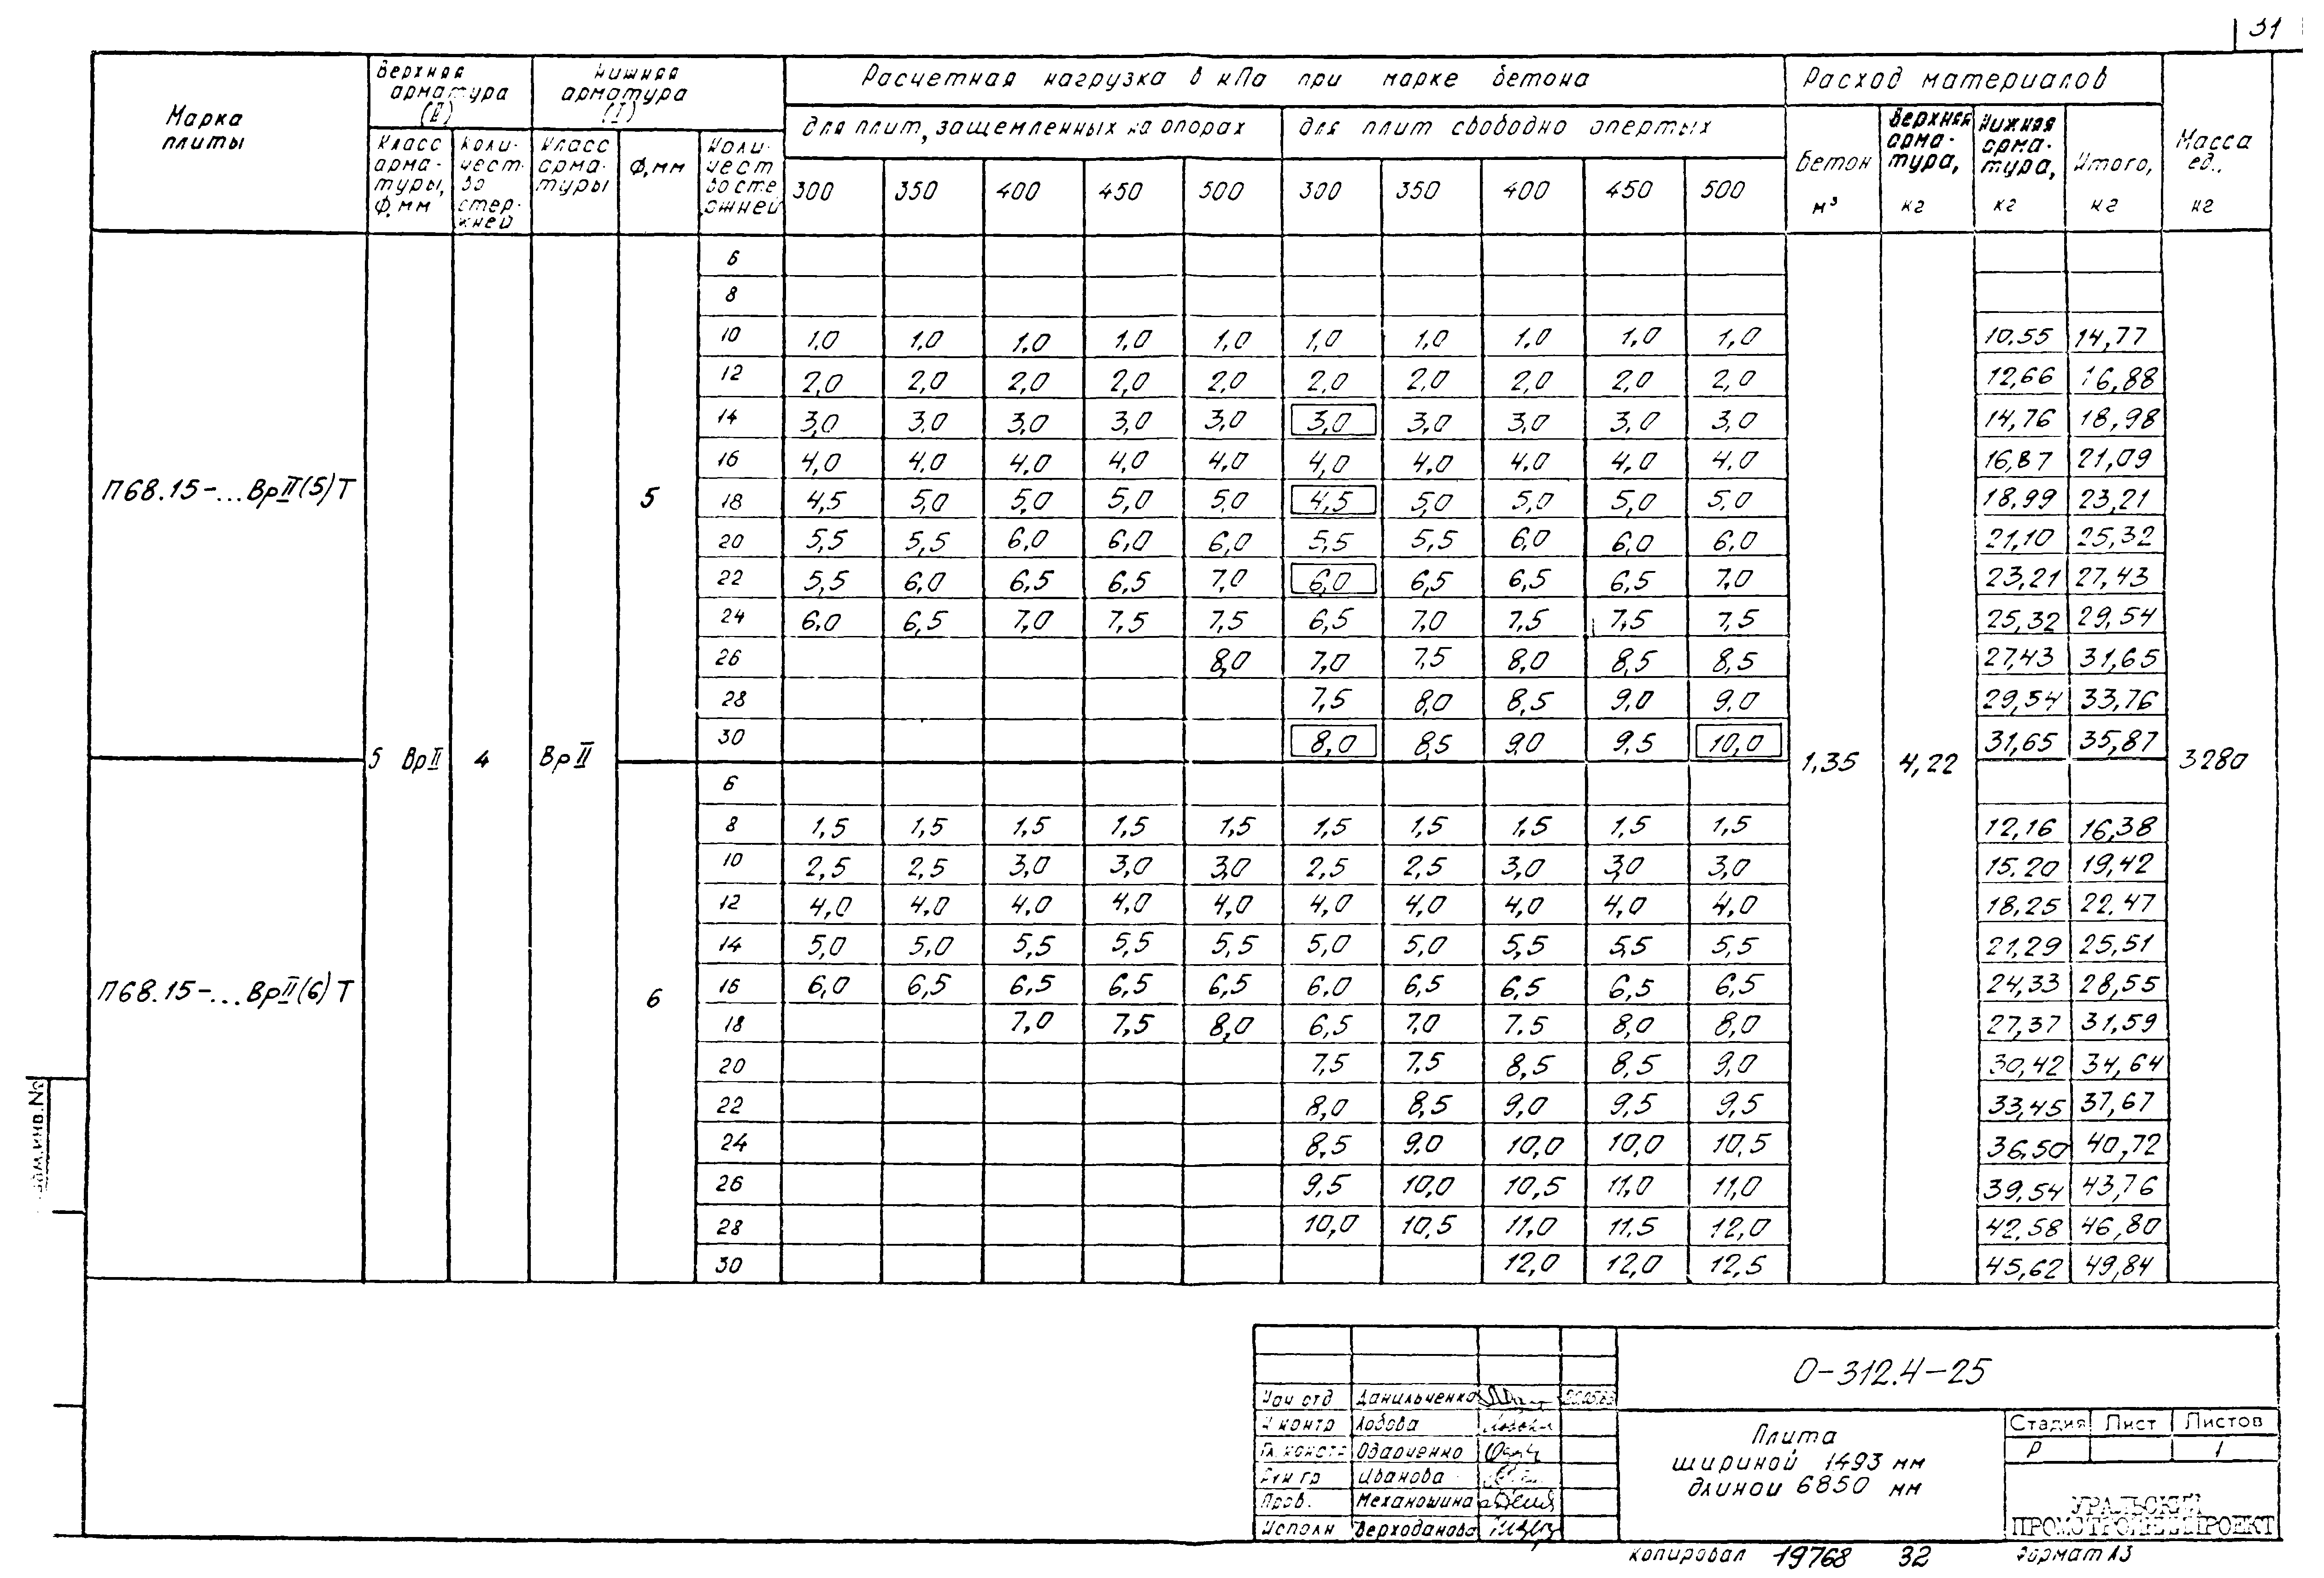 31
Марка плиты
Верхняя арматура (II)
Нижняя арматура (I)
Расчетная нагрузка в кПа при марке бетона
Расход материалов
Масса ед., кг
Класс арматуры, Ф, мм
Количество стержней
Класс арматуры
Ф, мм
Количество стержней
для плит, защемленных на опорах
для плит свободно опертых
Бетон м³
Верхняя арматура, кг
Нижняя арматура, кг
Итого, кг
300 350 400 450 500 300 350 400 450 500
П68.15-...ВрII(5)Т
5 ВрII 4 ВрII 5
1,35 4,22 3280
6
8
10 1,0 1,0 1,0 1,0 1,0 1,0 1,0 1,0 1,0 1,0 10,55 14,77
12 2,0 2,0 2,0 2,0 2,0 2,0 2,0 2,0 2,0 2,0 12,66 16,88
14 3,0 3,0 3,0 3,0 3,0 3,0 3,0 3,0 3,0 3,0 14,76 18,98
16 4,0 4,0 4,0 4,0 4,0 4,0 4,0 4,0 4,0 4,0 16,87 21,09
18 4,5 5,0 5,0 5,0 5,0 4,5 5,0 5,0 5,0 5,0 18,99 23,21
20 5,5 5,5 6,0 6,0 6,0 5,5 5,5 6,0 6,0 6,0 21,10 25,32
22 5,5 6,0 6,5 6,5 7,0 6,0 6,5 6,5 6,5 7,0 23,21 27,43
24 6,0 6,5 7,0 7,5 7,5 6,5 7,0 7,5 7,5 7,5 25,32 29,54
26 8,0 7,0 7,5 8,0 8,5 8,5 27,43 31,65
28 7,5 8,0 8,5 9,0 9,0 29,54 33,76
30 8,0 8,5 9,0 9,5 10,0 31,65 35,87
П68.15-...ВрII(6)Т
6
6
8 1,5 1,5 1,5 1,5 1,5 1,5 1,5 1,5 1,5 1,5 12,16 16,38
10 2,5 2,5 3,0 3,0 3,0 2,5 2,5 3,0 3,0 3,0 15,20 19,42
12 4,0 4,0 4,0 4,0 4,0 4,0 4,0 4,0 4,0 4,0 18,25 22,47
14 5,0 5,0 5,5 5,5 5,5 5,0 5,0 5,5 5,5 5,5 21,29 25,51
16 6,0 6,5 6,5 6,5 6,5 6,0 6,5 6,5 6,5 6,5 24,33 28,55
18 7,0 7,5 8,0 6,5 7,0 7,5 8,0 8,0 27,37 31,59
20 7,5 7,5 8,5 8,5 9,0 30,42 34,64
22 8,0 8,5 9,0 9,5 9,5 33,45 37,67
24 8,5 9,0 10,0 10,0 10,5 36,50 40,72
26 9,5 10,0 10,5 11,0 11,0 39,54 43,76
28 10,0 10,5 11,0 11,5 12,0 42,58 46,80
30 12,0 12,0 12,5 45,62 49,84
Взам.инв.№
О-312.4-25
Нач отд Данильченко
Н контр Лобова
Гл. констр Одарченко
Рук гр Иванова
Пров. Механошина
Исполн Верходанова
Плита
шириной 1493 мм
длиной 6850 мм
Стадия Лист Листов
Р 1
УРАЛЬСКИЙ
ПРОМСТРОЙНИИПРОЕКТ
Копировал 19768 32 Формат А3